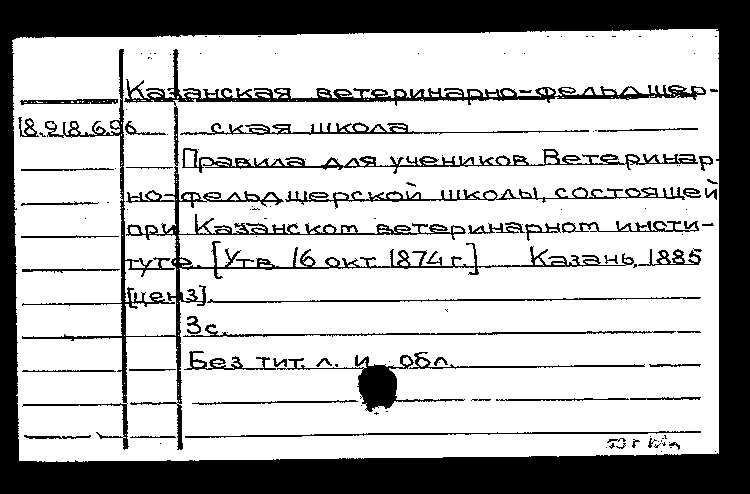 Казанская ветеринарно-фельдшер-
18.918.6.96 ская школа
Правила для учеников Ветеринар-
но-фельдшерской школы, состоящей
при Казанском ветеринарном инсти-
туте. [Утв. 16 окт. 1874 г.] Казань, 1885
[ценз].
3 с.
Без тит. л. и обл.